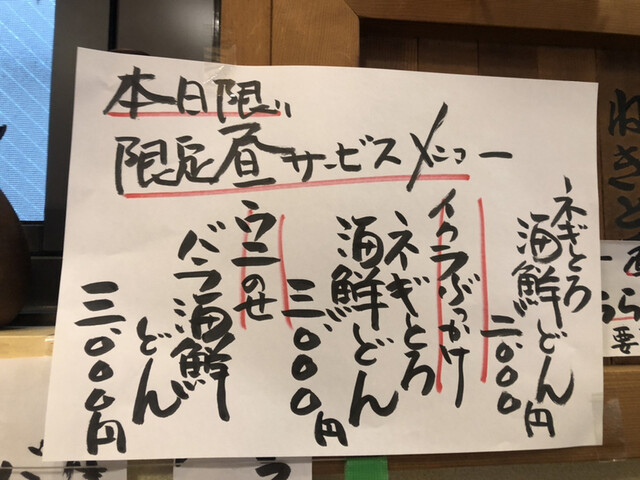 本日限り
限定昼サービスメニュー
ネギとろ
海鮮どん
二、000円
イクラぶっかけ
ネギとろ
海鮮どん
三、000円
ウニのせ
バラ海鮮
どん
三、000円
ねぎと
要